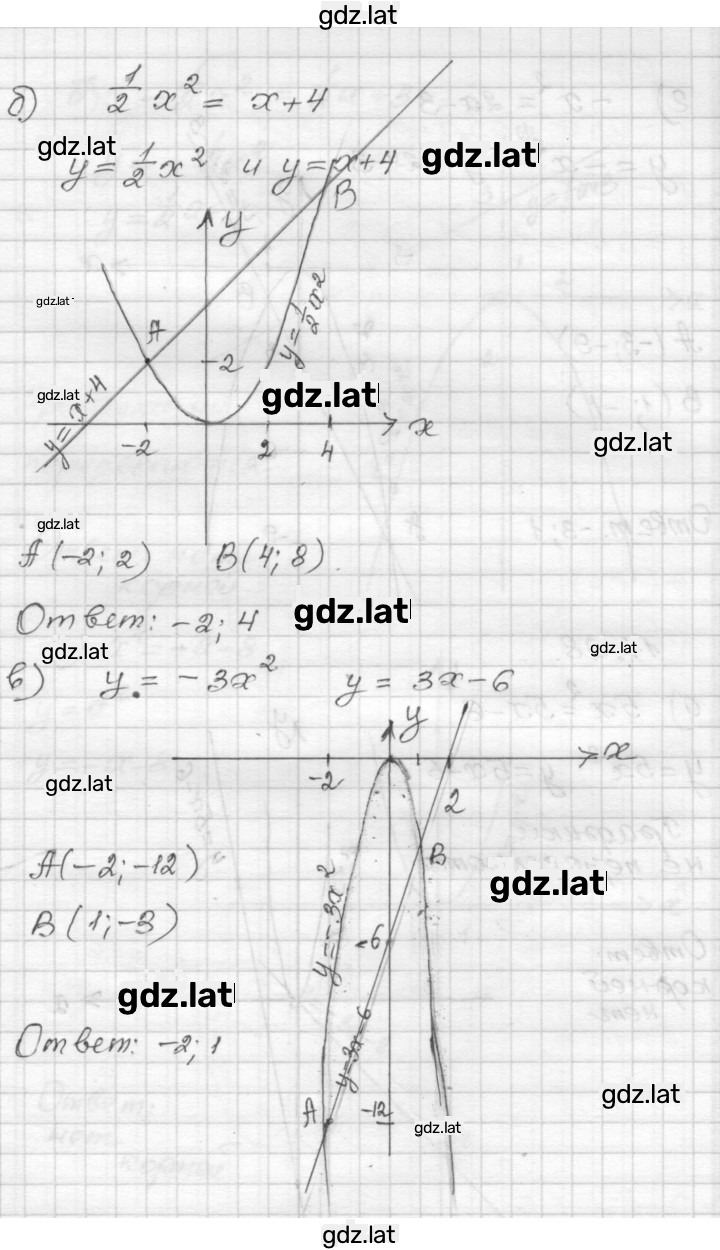 gdz.lat
б) 1/2 x² = x+4
gdz.lat
y = 1/2 x² и y = x+4 gdz.lat
B
y
gdz.lat
y = 1/2 x²
A
2
gdz.lat
y = x+4
gdz.lat
x
-2 2 4
gdz.lat
gdz.lat
A(-2; 2) B(4; 8)
Ответ: -2; 4 gdz.lat
gdz.lat gdz.lat
в) y = -3x² y = 3x-6
y
x
-2 2
gdz.lat
A(-2; -12)
B
y = -3x²
gdz.lat
B(1; -3)
-6
gdz.lat
Ответ: -2; 1
y=3x-6
gdz.lat
A -12
gdz.lat
gdz.lat